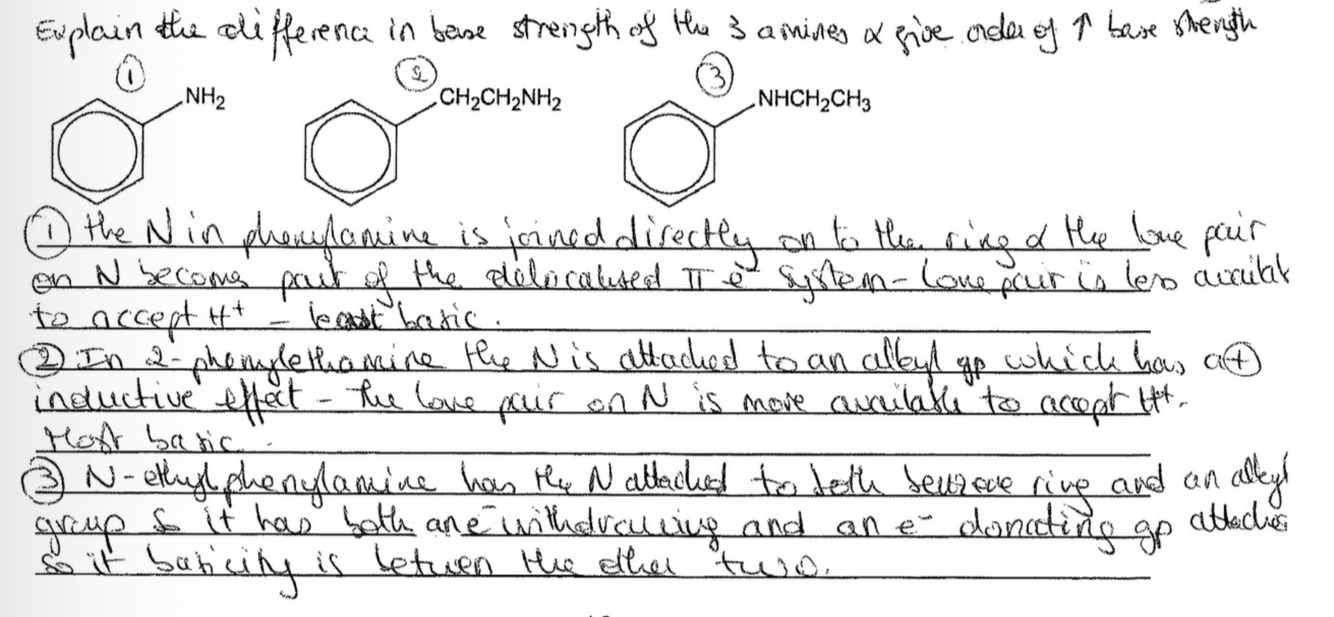 Explain the difference in base strength of the 3 amines & give order of ↑ base strength
① ② ③
NH₂ CH₂CH₂NH₂ NHCH₂CH₃
① the N in phenylamine is joined directly on to the ring & the lone pair
on N becomes part of the delocalised π e⁻ system - lone pair is less availabl
to accept H⁺ - least basic.
② In 2-phenylethamine the N is attached to an alkyl gp which has a ⊕
inductive effect - the lone pair on N is more available to accept H⁺.
Most basic.
③ N-ethylphenylamine has the N attached to both benzene ring and an alkyl
group so it has both an e⁻ withdrawing and an e⁻ donating gp attached
so it basicity is between the other two.